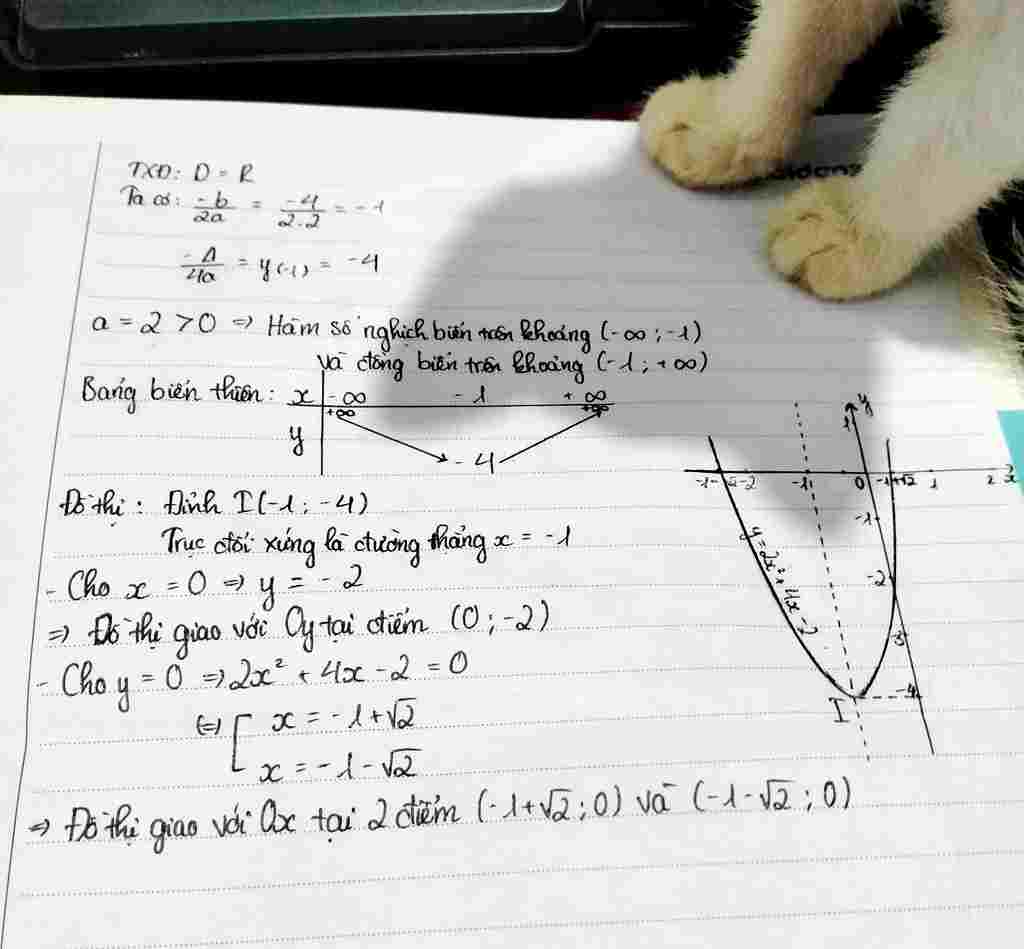 TXĐ: D = R
Ta có: -b/2a = -4/2.2 = -1
-Δ/4a = y(-1) = -4
a = 2 > 0 => Hàm số nghịch biến trên khoảng (-∞; -1)
và đồng biến trên khoảng (-1; +∞)
Bảng biến thiên: x -∞ -1 +∞
y +∞ -4 +∞
Đồ thị: Đỉnh I(-1; -4)
Trục đối xứng là đường thẳng x = -1
- Cho x = 0 => y = -2
=> Đồ thị giao với Oy tại điểm (0; -2)
- Cho y = 0 => 2x² + 4x - 2 = 0
(=) [ x = -1+√2
x = -1-√2
=> Đồ thị giao với Ox tại 2 điểm (-1+√2; 0) và (-1-√2; 0)
y
1
-1-√2 -2 -1 0 -1+√2 1 2 x
-1
y = 2x² + 4x - 2
-2
-3
I -4